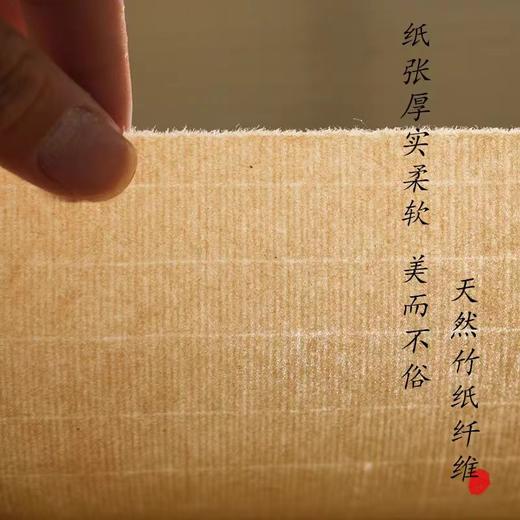 纸张厚实柔软 美而不俗
天然竹纸纤维